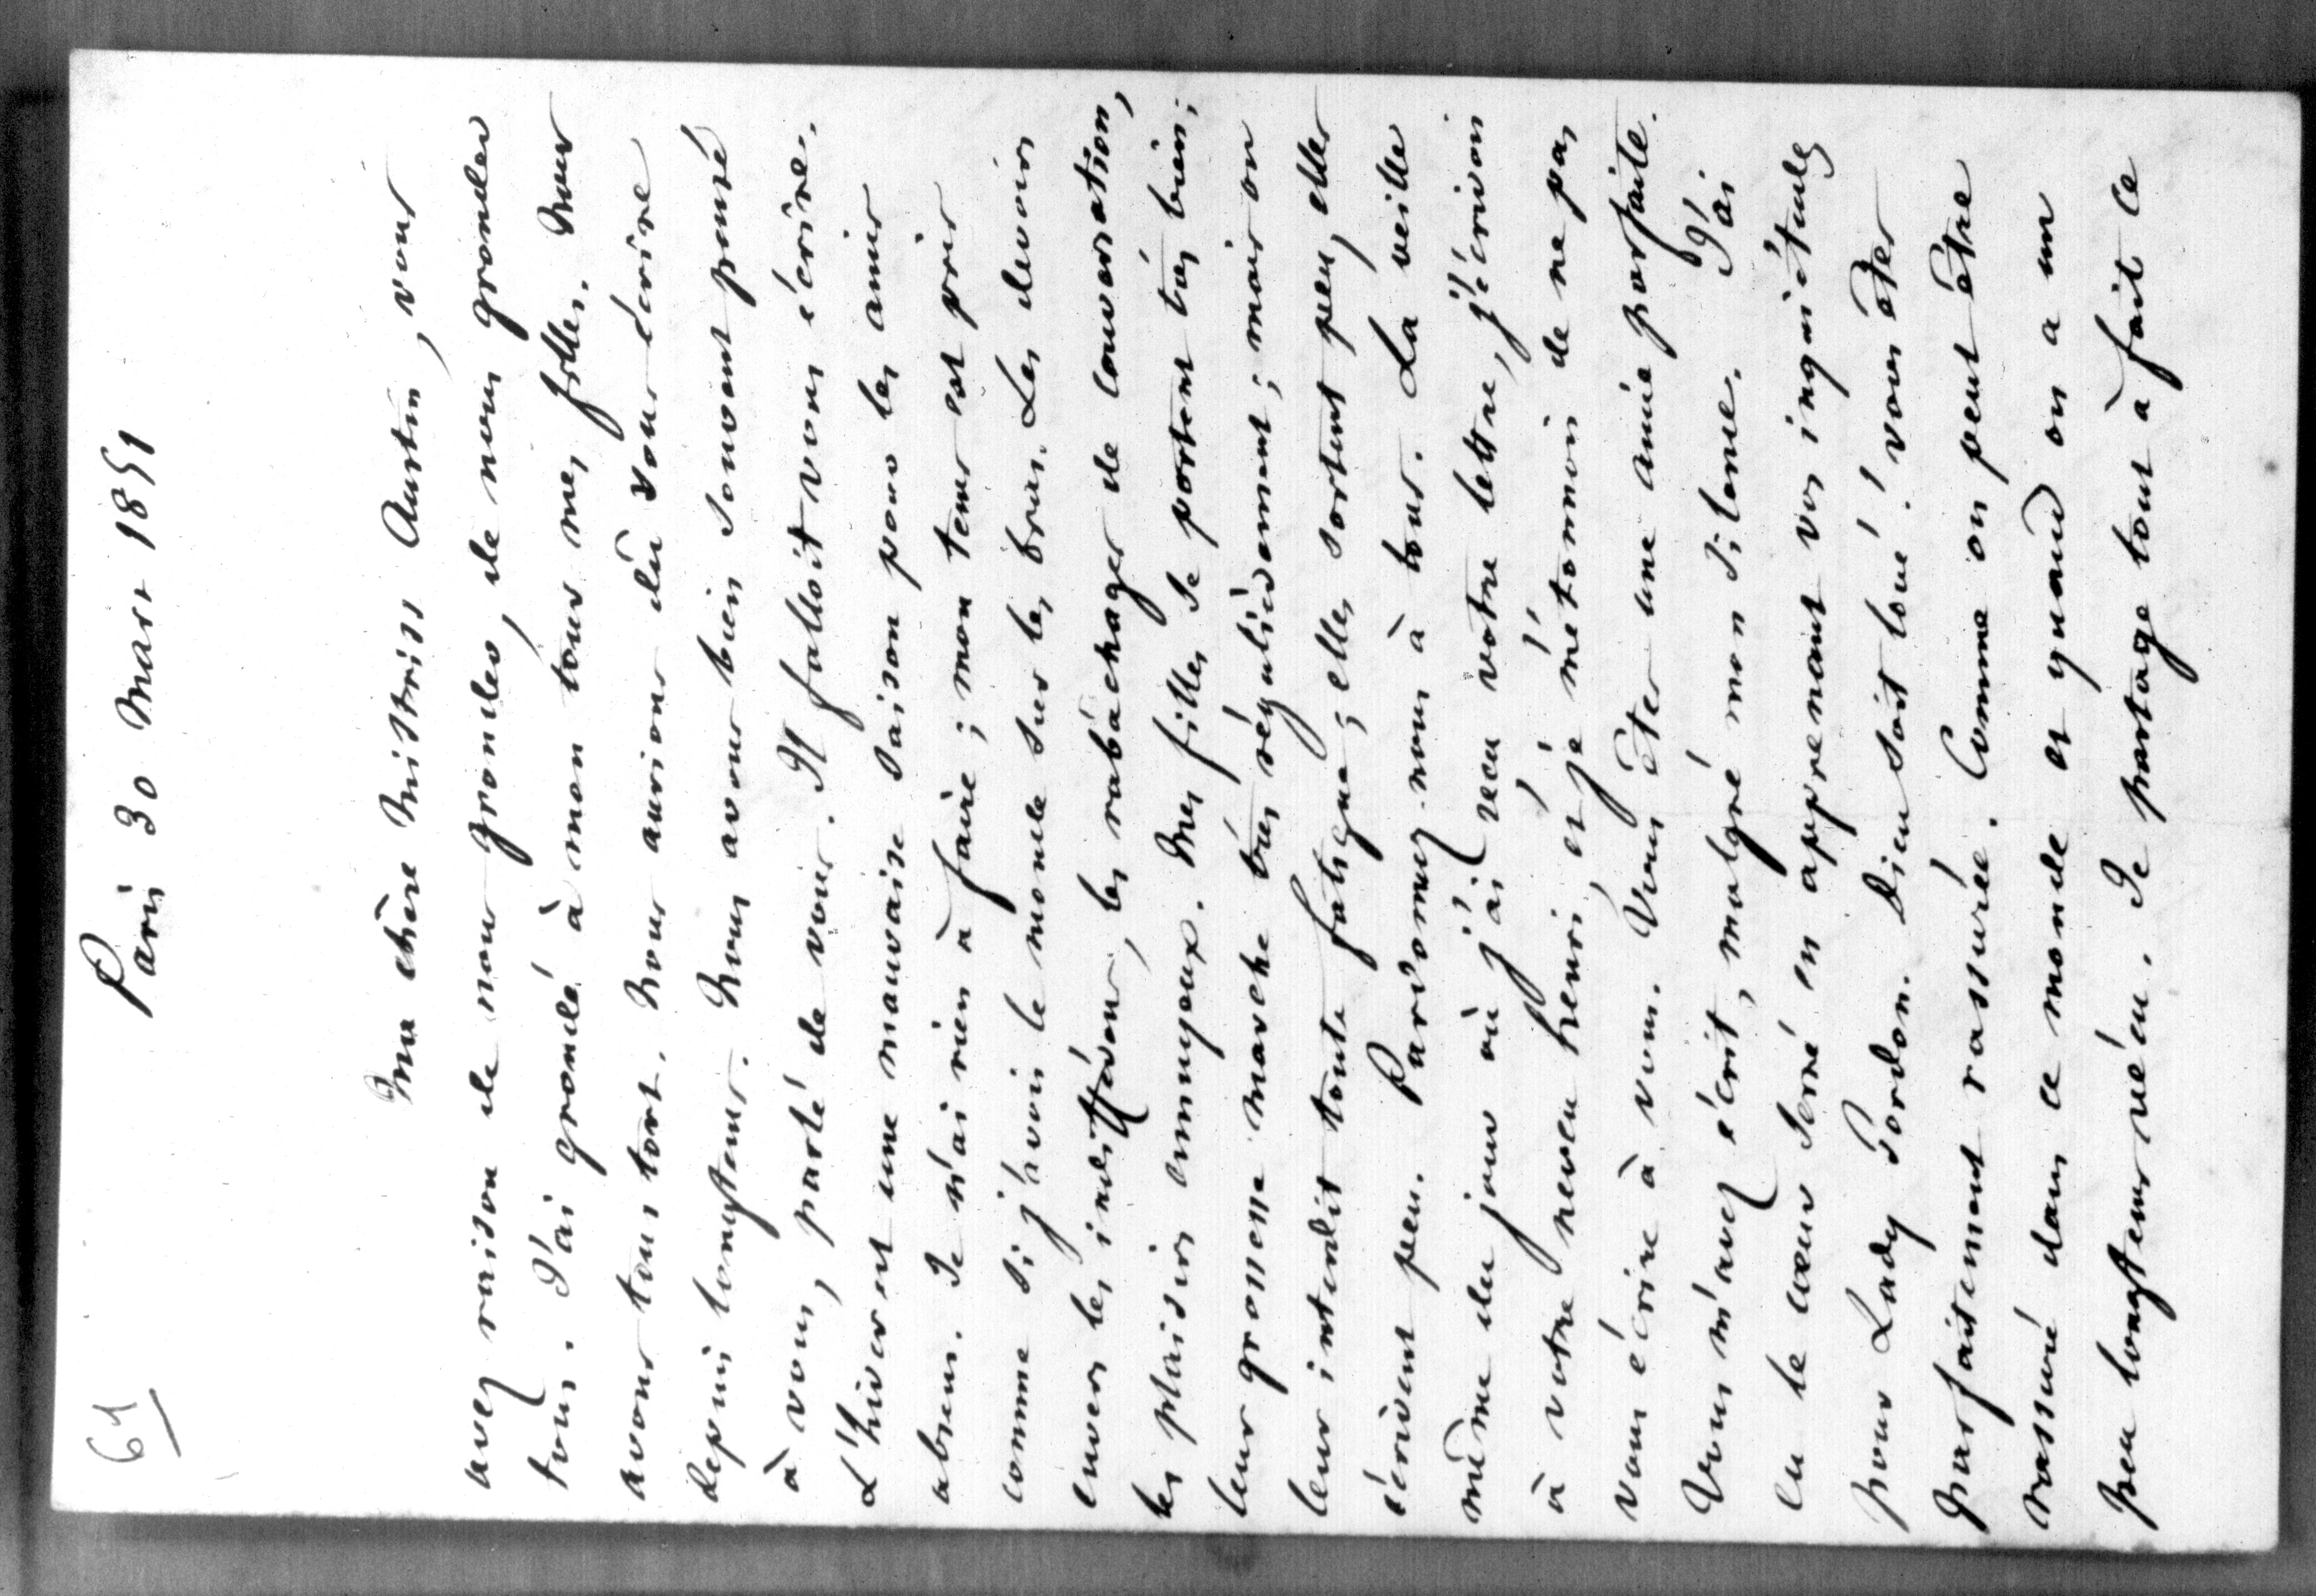 61
Paris 30 Mars 1851
Ma chère Mistriss Austin, vous
avez raison de nous gronder, de nous gronder
tous. J'ai grondé à mon tour mes filles. Nous
avons tous tort. Nous aurions dû vous écrire
depuis longtems. Nous avons bien souvent pensé
à vous, parlé de vous. Il falloit vous écrire.
L'hiver est une mauvaise saison pour les amis
absens. Je n'ai rien à faire ; mon tems est pris
comme si j'avois le monde sur les bras. Les devoirs
envers les indifférens, les rabachages de conversation,
les plaisirs ennuyeux. Mes filles se portent très bien ;
leur grossesse marche très régulièrement ; mais on
leur interdit toute fatigue ; elles sortent peu, elles
écrivent peu. Pardonnez-nous à tous. La veille
même du jour où j'ai reçu votre lettre, j'écrivois
à votre neveu henri, et je m'étonnois de ne pas
vous écrire à vous. Vous êtes une amie parfaite.
Vous m'avez écrit, malgré mon silence. J'ai
eu le cœur serré en apprenant vos inquiétudes
pour Lady Gordon. Dieu soit loué ! vous êtes
parfaitement rassurée. Comme on peut être
rassuré dans ce monde et quand on a un
peu longtems vécu. Je partage tout à fait ce